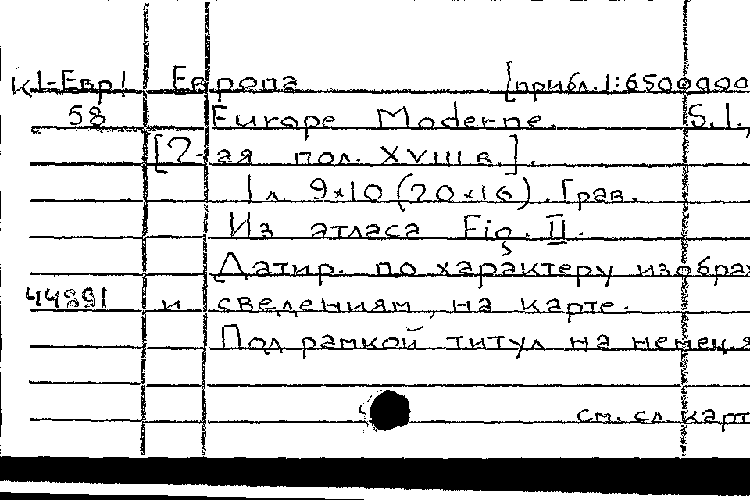 К1-Евр! Европа [прибл. 1:6500000
58 Europe Moderne. S.l.,
[2-ая пол. XVIII в.].
1 л. 9×10 (20×16). Грав.
Из атласа Fig. II.
Датир. по характеру изобра
44891 и сведениям, на карте.
Под рамкой титул на немец. я
см. сл. карт